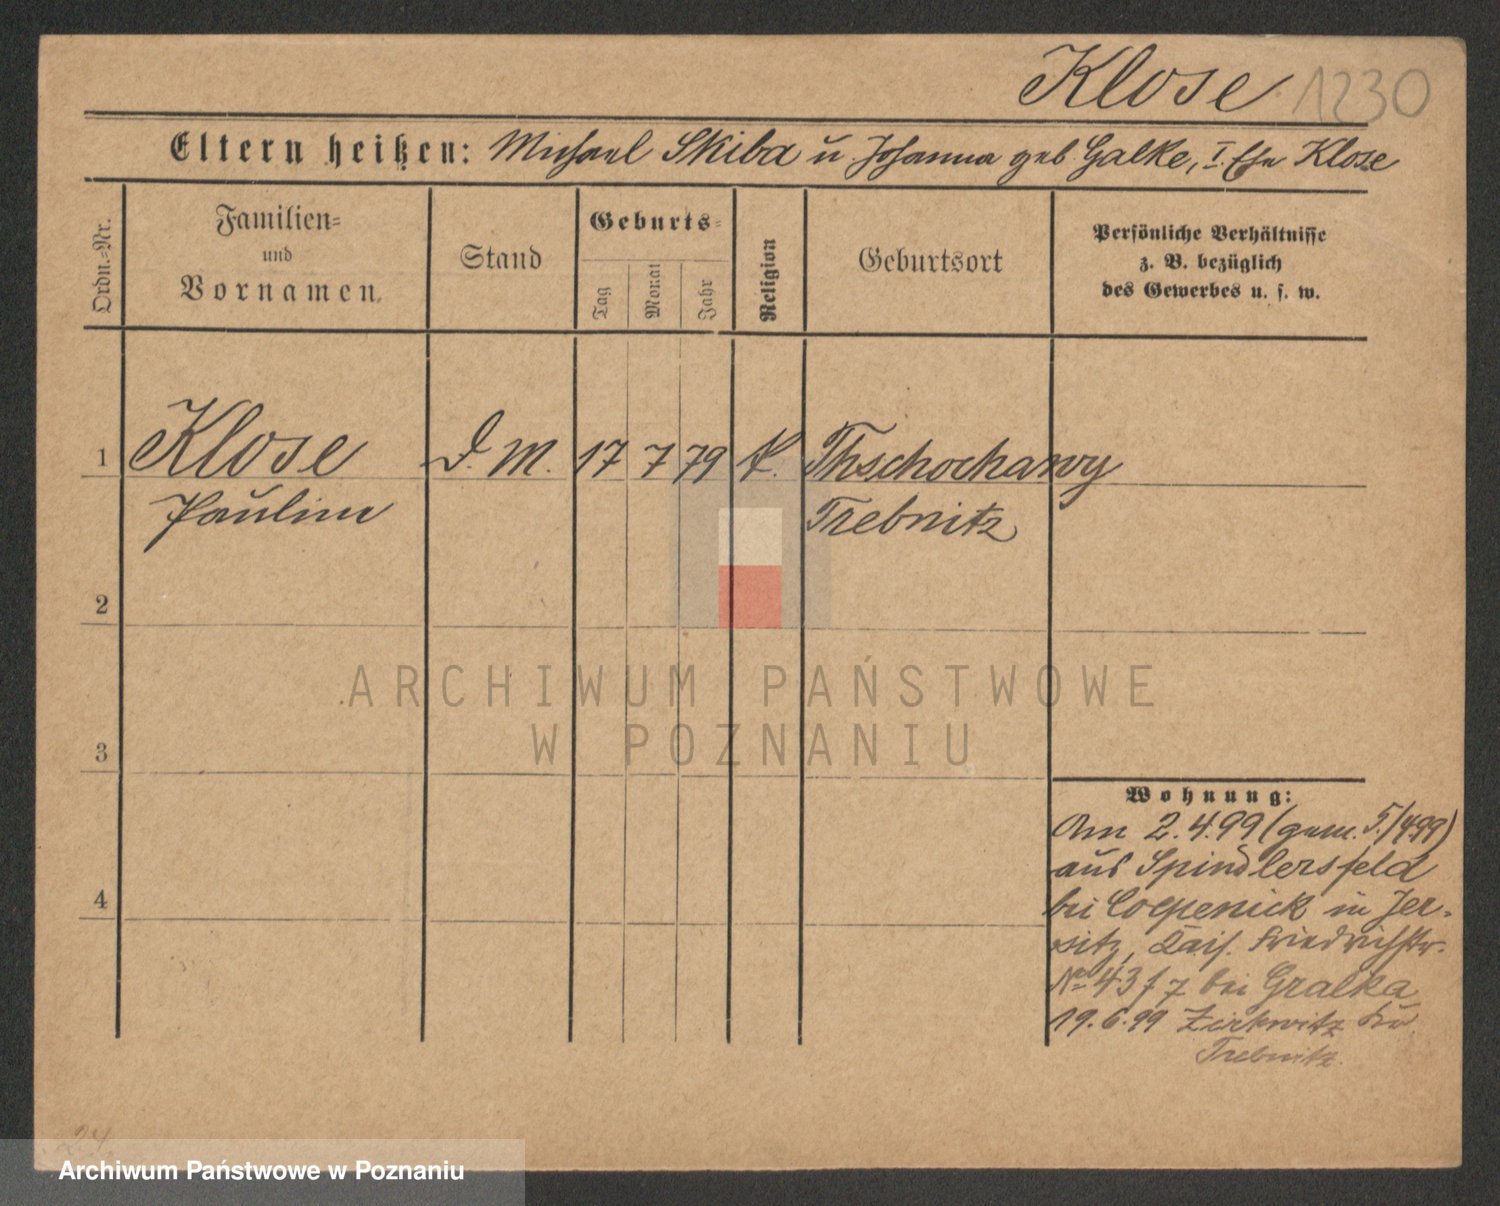 Klose 1230
Eltern heißen: Michael Skiba u Johanna geb Galke, I. Ehe Klose
Ordn.-Nr.
Familien-
und
Vornamen
Stand
Geburts-
Tag
Monat
Jahr
Religion
Geburtsort
Persönliche Verhältnisse
z. B. bezüglich
des Gewerbes u. s. w.
1 Klose D. M. 17 7 79 K. Thschochawy
Pauline Trebnitz
2
3
4
ARCHIWUM PAŃSTWOWE
W POZNANIU
Wohnung:
Am 2.4.99 (gem. 5./4.99)
aus Spindlersfeld
bei Coepenick in Jer-
sitz, Kais. Friedrichstr.
No 43 f 7 bei Gralka
19.6.99 Zirkwitz Kr.
Trebnitz.
24
Archiwum Państwowe w Poznaniu